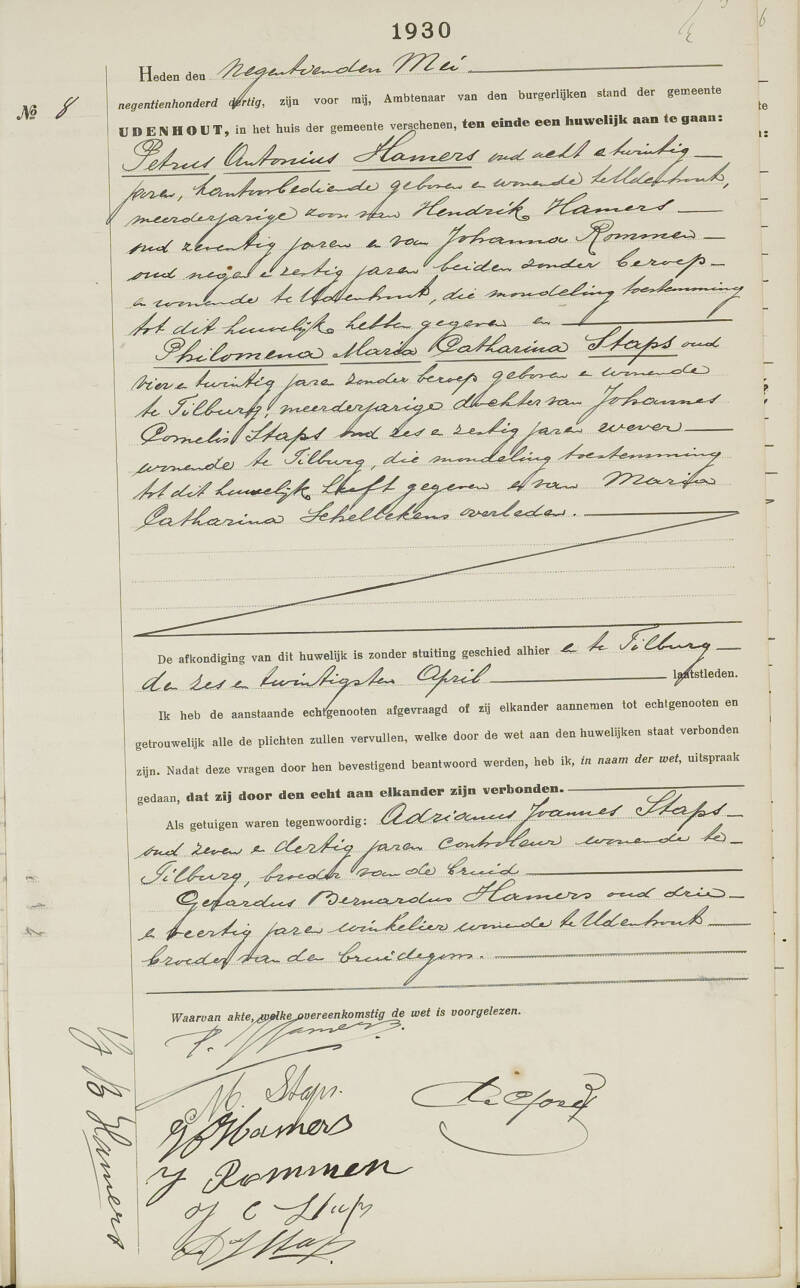 1930
Heden den negentienden Mei
negentienhonderd dertig, zijn voor mij, Ambtenaar van den burgerlijken stand der gemeente
Nº 8
UDENHOUT, in het huis der gemeente verschenen, ten einde een huwelijk aan te gaan:
Petrus Antonius Hamers oud acht e twintig
jaren, kantoorbediende geboren e wonende te Udenhout,
meerderjarige zoon van Hendrik Hamers
oud zeventig jaren e van Johanna Rommen
oud negen e zestig jaren beiden zonder beroep
e wonende te Udenhout, die mondeling toestemming
tot dit huwelijk hebben gegeven en
Philomena Maria Catharina Staps oud
vier e twintig jaren zonder beroep geboren e wonende
te Tilburg, meerderjarige dochter van Johannes
Cornelis Staps oud zes e zestig jaren wever
wonende te Tilburg, die mondeling toestemming
tot dit huwelijk heeft gegeven e van Maria
Catharina Schellekens overleden.
De afkondiging van dit huwelijk is zonder stuiting geschied alhier e te Tilburg
den zes e twintigsten April laatstleden.
Ik heb de aanstaande echtgenooten afgevraagd of zij elkander aannemen tot echtgenooten en
getrouwelijk alle de plichten zullen vervullen, welke door de wet aan den huwelijken staat verbonden
zijn. Nadat deze vragen door hen bevestigend beantwoord werden, heb ik, in naam der wet, uitspraak
gedaan, dat zij door den echt aan elkander zijn verbonden.
Als getuigen waren tegenwoordig: Adrianus Joannes Staps
oud zeven e dertig jaren controleur wonende te
Tilburg, broeder van de bruid
Gerardus Bernardus Hamers oud drie
e veertig jaren winkelier wonende te Udenhout
broeder van den bruidegom.
Waarvan akte, welke overeenkomstig de wet is voorgelezen.
P. Hamers.
M. Staps.
Hamers
J Rommen
J C Staps
Staps.
G B Hamers